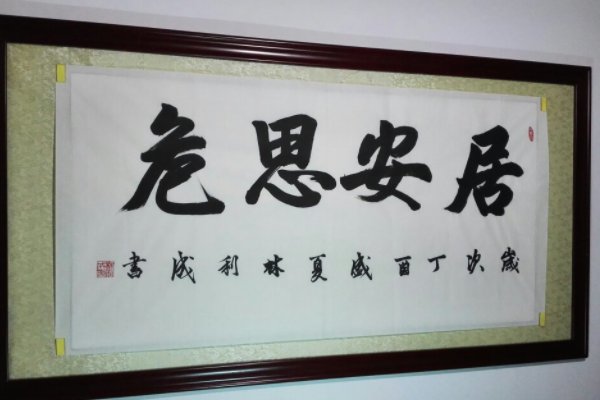 居安思危
歲次丁酉盛夏林利成書